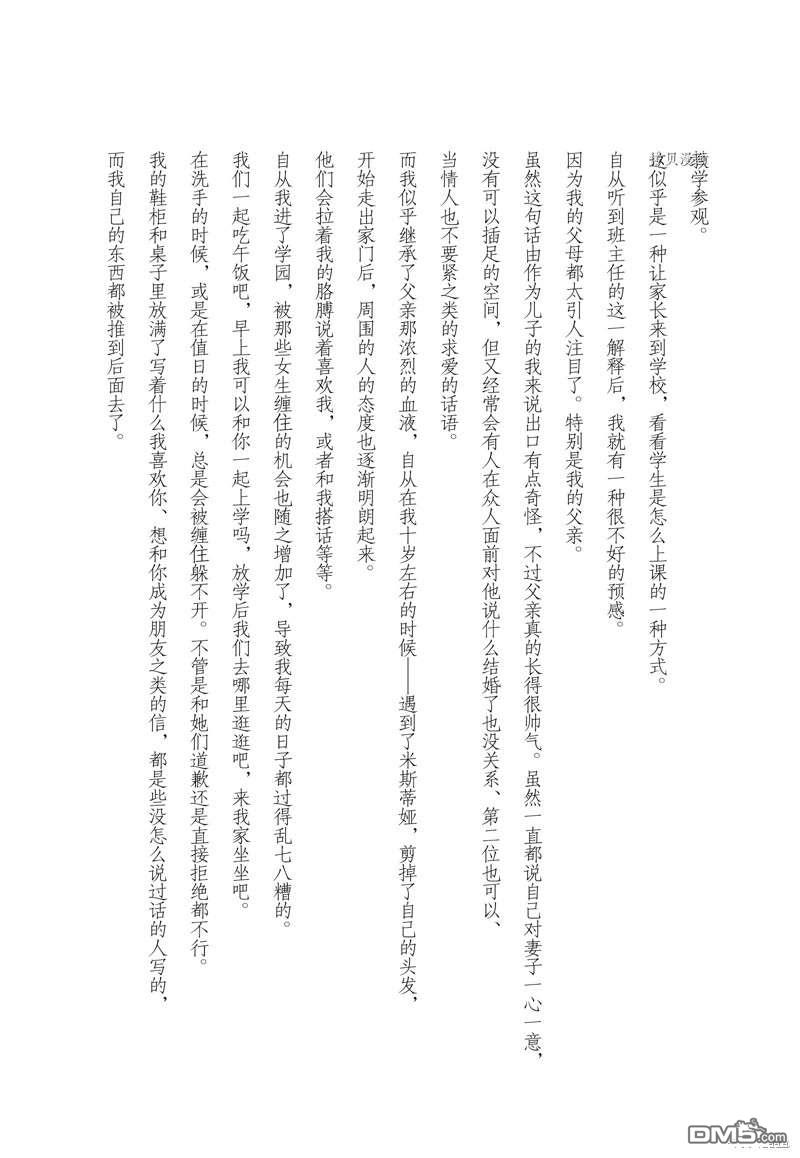 教学参观。
这似乎是一种让家长来到学校，看看学生是怎么上课的一种方式。
自从听到班主任的这一解释后，我就有一种很不好的预感。
因为我的父母都太引人注目了。特别是我的父亲。
虽然这句话由作为儿子的我来说出口有点奇怪，不过父亲真的长得很帅气。虽然一直都说自己对妻子一心一意，
没有可以插足的空间，但又经常会有人在众人面前对他说什么结婚了也没关系、第二位也可以、
当情人也不要紧之类的求爱的话语。
而我似乎继承了父亲那浓烈的血液，自从在我十岁左右的时候——遇到了米斯蒂娅，剪掉了自己的头发，
开始走出家门后，周围的人的态度也逐渐明朗起来。
他们会拉着我的胳膊说着喜欢我，或者和我搭话等等。
自从我进了学园，被那些女生缠住的机会也随之增加了，导致我每天的日子都过得乱七八糟的。
我们一起吃午饭吧，早上我可以和你一起上学吗，放学后我们去哪里逛逛吧，来我家坐坐吧。
在洗手的时候，或是在值日的时候，总是会被缠住躲不开。不管是和她们道歉还是直接拒绝都不行。
我的鞋柜和桌子里放满了写着什么我喜欢你、想和你成为朋友之类的信，都是些没怎么说过话的人写的，
而我自己的东西都被推到后面去了。
DM5.com